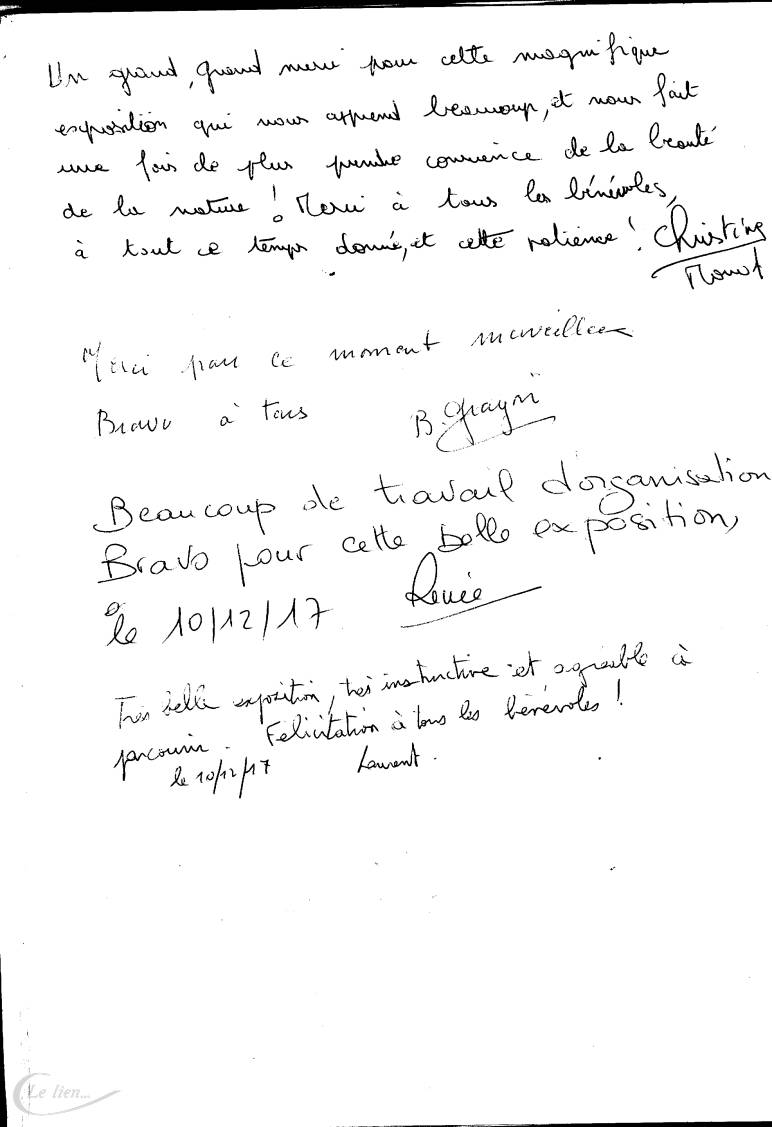 Un grand, grand merci pour cette magnifique
exposition qui nous apprend beaucoup, et nous fait
une fois de plus prendre conscience de la beauté
de la nature ! Merci à tous les bénévoles,
à tout ce temps donné, et cette patience ! Christine
Merci pour ce moment merveilleux
Bravo à tous B.
Beaucoup de travail d'organisation
Bravo pour cette belle exposition,
le 10/12/17 Renée
Très belle exposition, très instructive et agréable à
parcourir. Felicitation à tous les bénévoles !
le 10/12/17 Laurent.
Le lien...